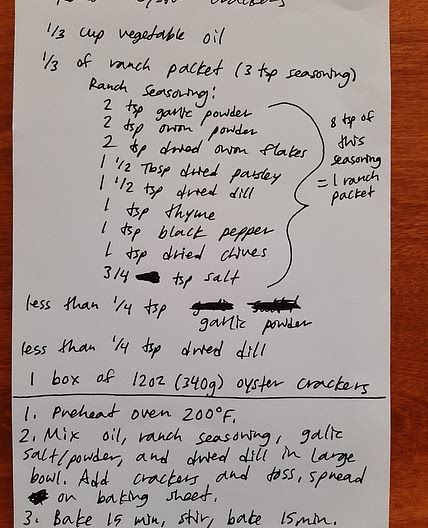 1/3 cup vegetable oil
1/3 of ranch packet (3 tsp seasoning)
Ranch Seasoning:
2 tsp garlic powder
2 tsp onion powder
2 tsp dried onion flakes
1 1/2 Tbsp dried parsley
1 1/2 tsp dried dill
1 tsp thyme
1 tsp black pepper
1 tsp dried chives
3/4 tsp salt
8 tsp of
this
seasoning
= 1 ranch
packet
less than 1/4 tsp
garlic powder
less than 1/4 tsp dried dill
1 box of 12oz (340g) oyster crackers
1. Preheat oven 200°F.
2. Mix oil, ranch seasoning, galic
salt/powder, and dried dill in large
bowl. Add crackers and toss, spread
on baking sheet.
3. Bake 15 min, stir, bake 15min.